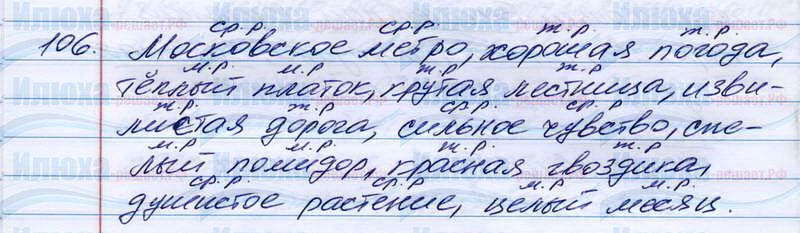 ср.р. ср.р. ж.р. ж.р.
106. Московское метро, хорошая погода,
м.р. м.р ж.р ж.р
тёплый платок, крутая лестница, изви-
ж.р. ж.р ср.р. ср.р
листая дорога, сильное чувство, спе-
м.р м.р. ж.р. ж.р
лый помидор, красная гвоздика,
ср.р. ср.р. м.р. м.р.
душистое растение, целый месяц.